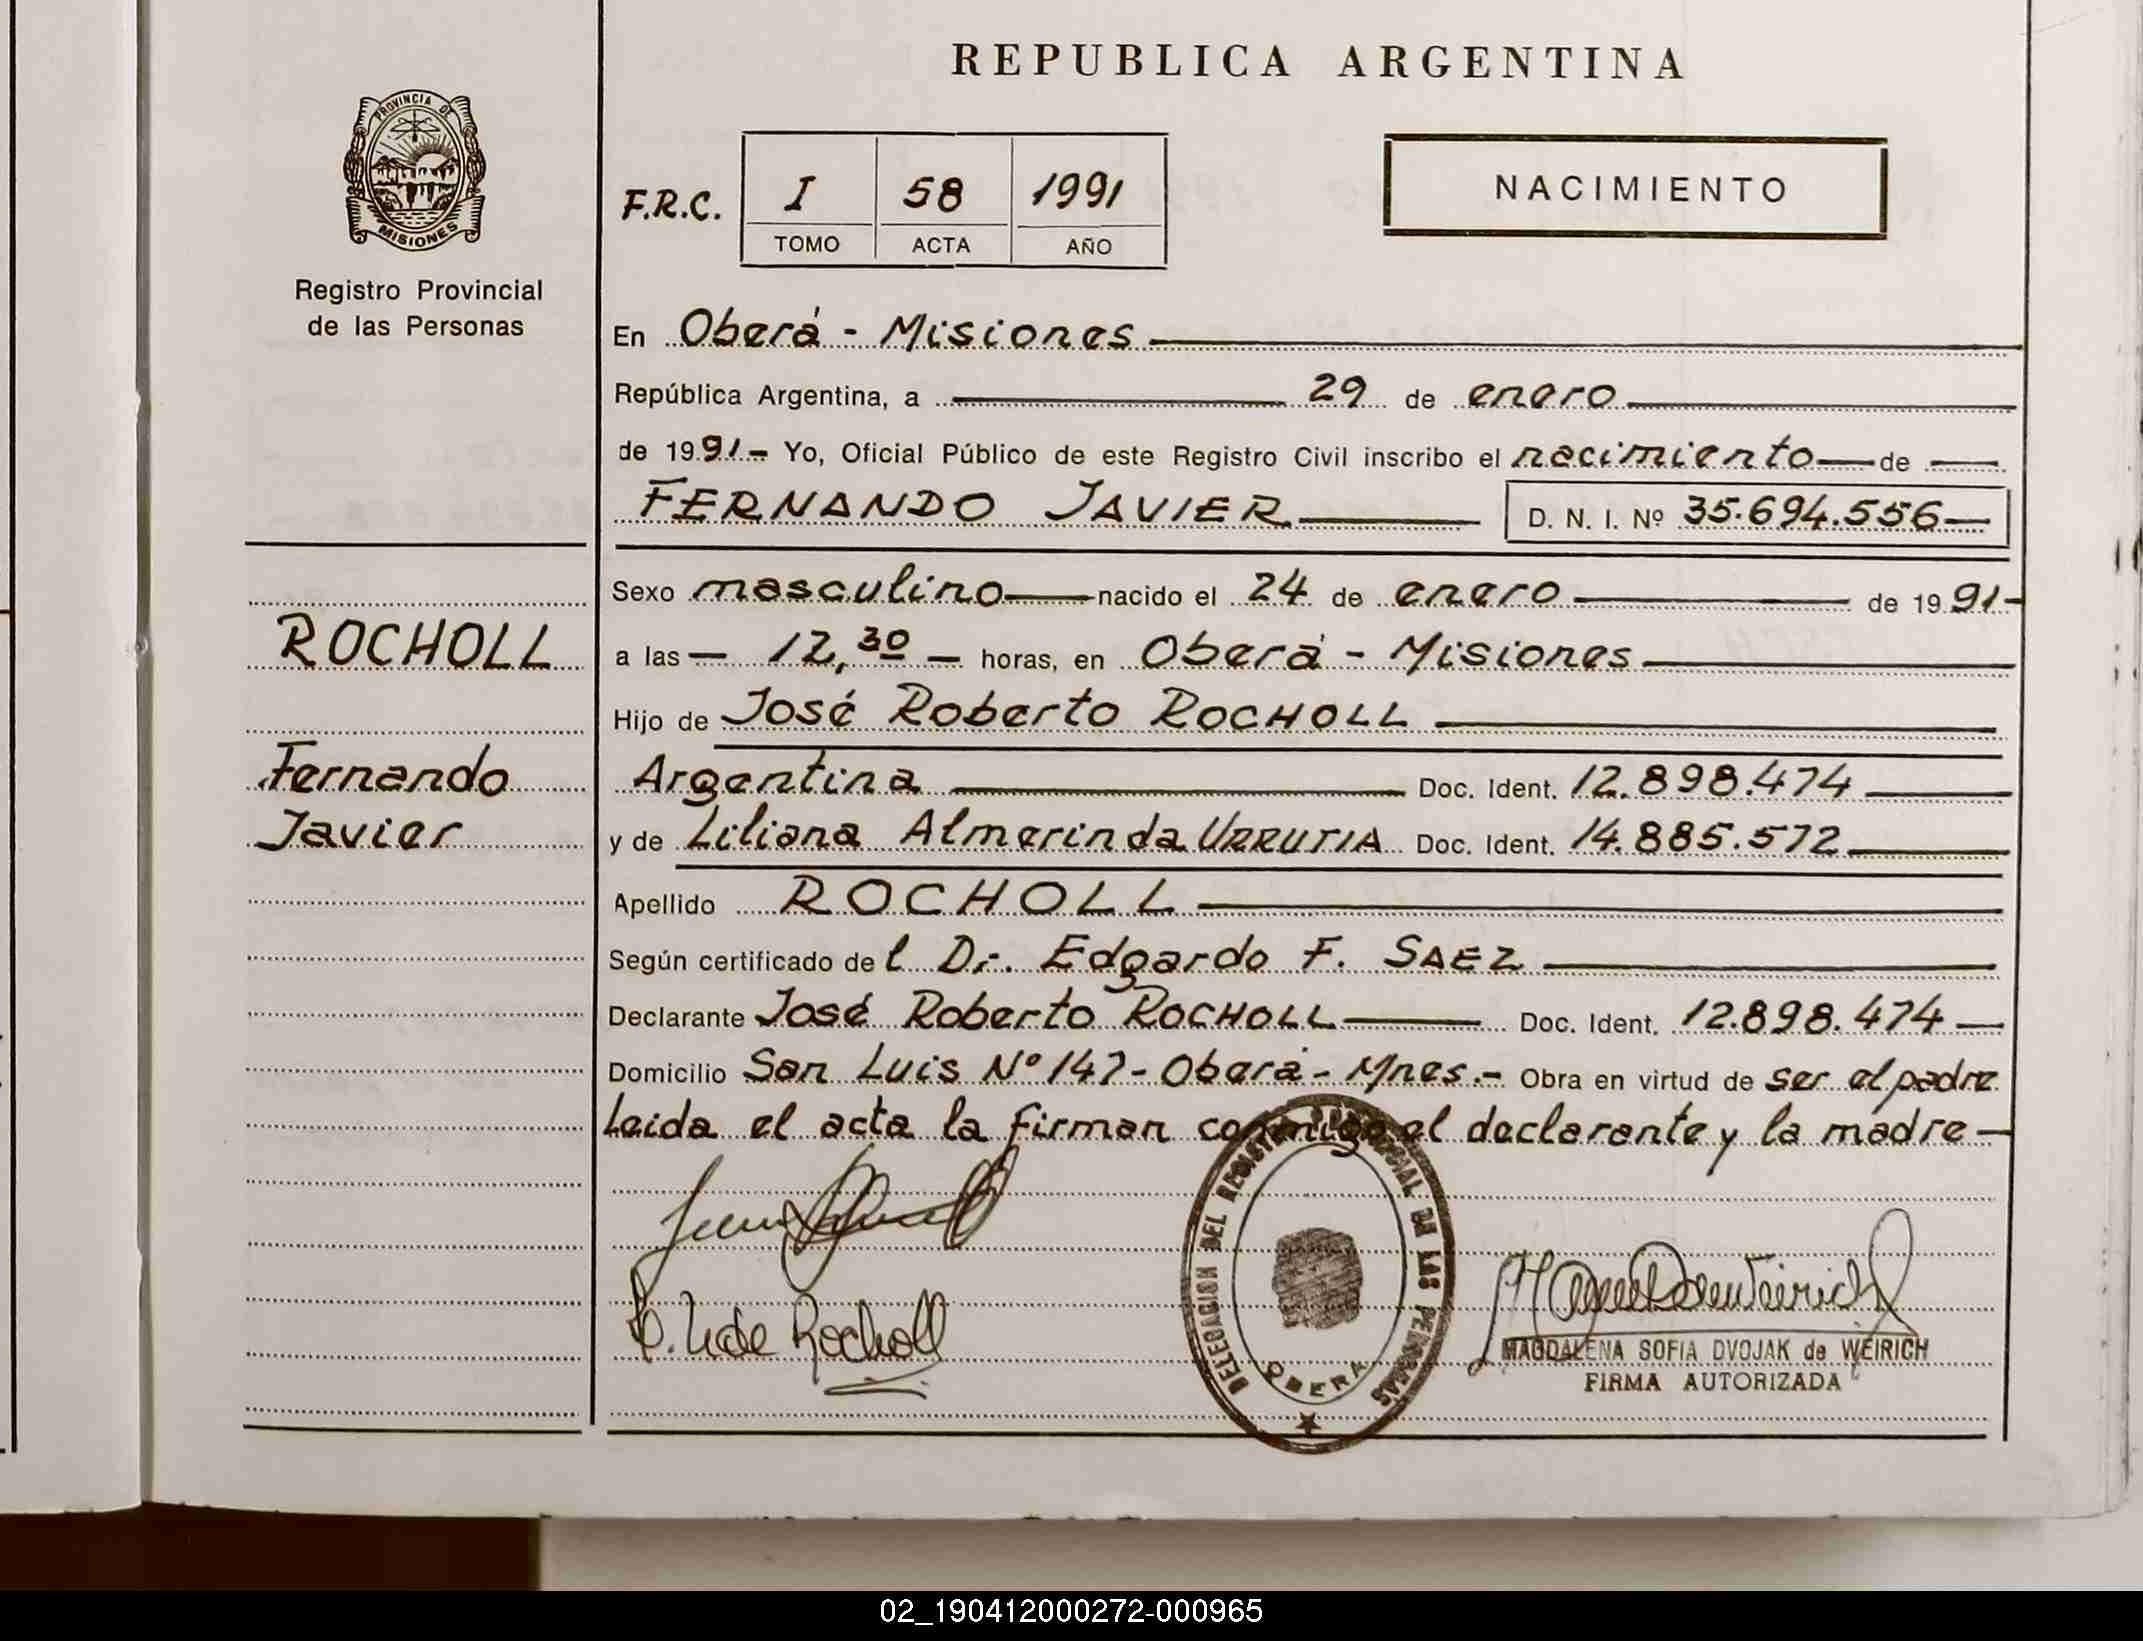 REPUBLICA ARGENTINA
PROVINCIA DE
MISIONES
Registro Provincial
de las Personas
F.R.C.
I 58 1991
TOMO ACTA AÑO
NACIMIENTO
En Oberá - Misiones
República Argentina, a 29 de enero
de 1991- Yo, Oficial Público de este Registro Civil inscribo el nacimiento de
FERNANDO JAVIER D. N. I. Nº 35.694.556
Sexo masculino nacido el 24 de enero de 1991-
a las 12,30 horas, en Oberá - Misiones
Hijo de José Roberto ROCHOLL
Argentina Doc. Ident. 12.898.474
y de Liliana Almerinda URRUTIA Doc. Ident. 14.885.572
Apellido ROCHOLL
Según certificado del Dr. Edgardo F. SAEZ
Declarante José Roberto ROCHOLL Doc. Ident. 12.898.474
Domicilio San Luis Nº 147 - Oberá - Mnes.- Obra en virtud de ser el padre
Leida el acta la firman conmigo el declarante y la madre
ROCHOLL
Fernando
Javier
Rocholl
DELEGACION DEL REGISTRO PROVINCIAL DE LAS PERSONAS
OBERA
MAGDALENA SOFIA DVOJAK de WEIRICH
FIRMA AUTORIZADA
02_190412000272-000965